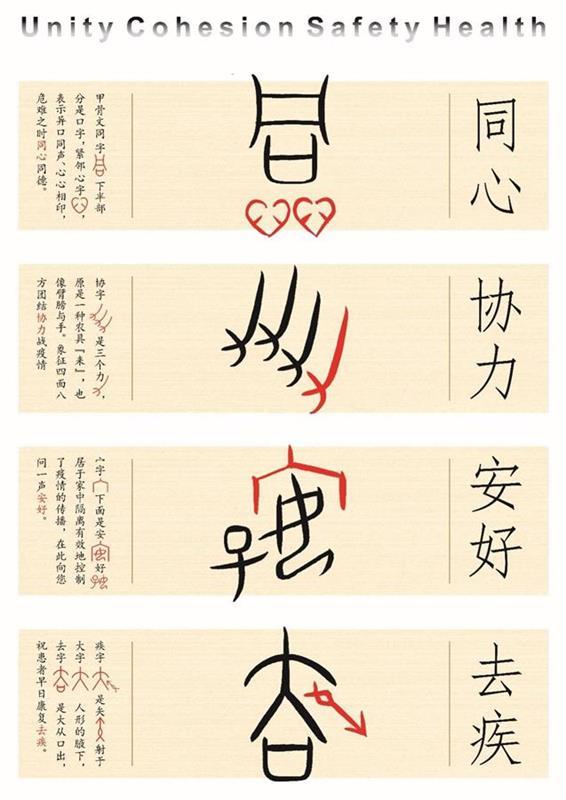 Unity Cohesion Safety Health
同心
甲骨文同字下半部
分是口字,紧邻心字,
表示异口同声、心心相印,
危难之时同心同德。
协力
协字是三个力,
原是一种农具「耒」,也
像臂膀与手。象征四面八
方团结协力战疫情
安好
宀字下面是安好
居于家中隔离有效地控制
了疫情的传播,在此向您
问一声安好。
去疾
疾字是矢射于
大字人形的腋下,
去字是大从口出,
祝患者早日康复去疾。